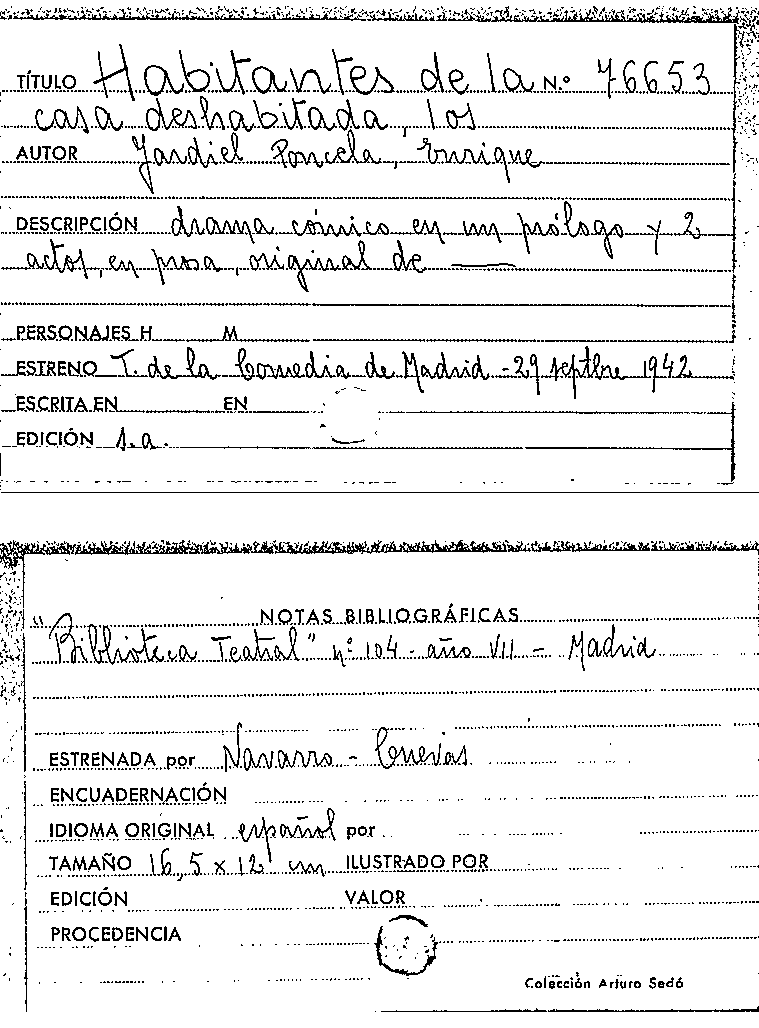 TÍTULO Habitantes de la N.º 76653
casa deshabitada, los
AUTOR Jardiel Poncela, Enrique
DESCRIPCIÓN drama cómico en un prólogo y 2
actos, en prosa, original de —
PERSONAJES H M
ESTRENO T. de la Comedia de Madrid - 29 septbre 1942
ESCRITA EN EN
EDICIÓN s.a.
NOTAS BIBLIOGRÁFICAS
"Biblioteca Teatral" nº 104 - año VII - Madrid
ESTRENADA por Navarro - Cuevas
ENCUADERNACIÓN
IDIOMA ORIGINAL español por
TAMAÑO 16,5 x 12 cm ILUSTRADO POR
EDICIÓN VALOR
PROCEDENCIA
Colección Arturo Sedó